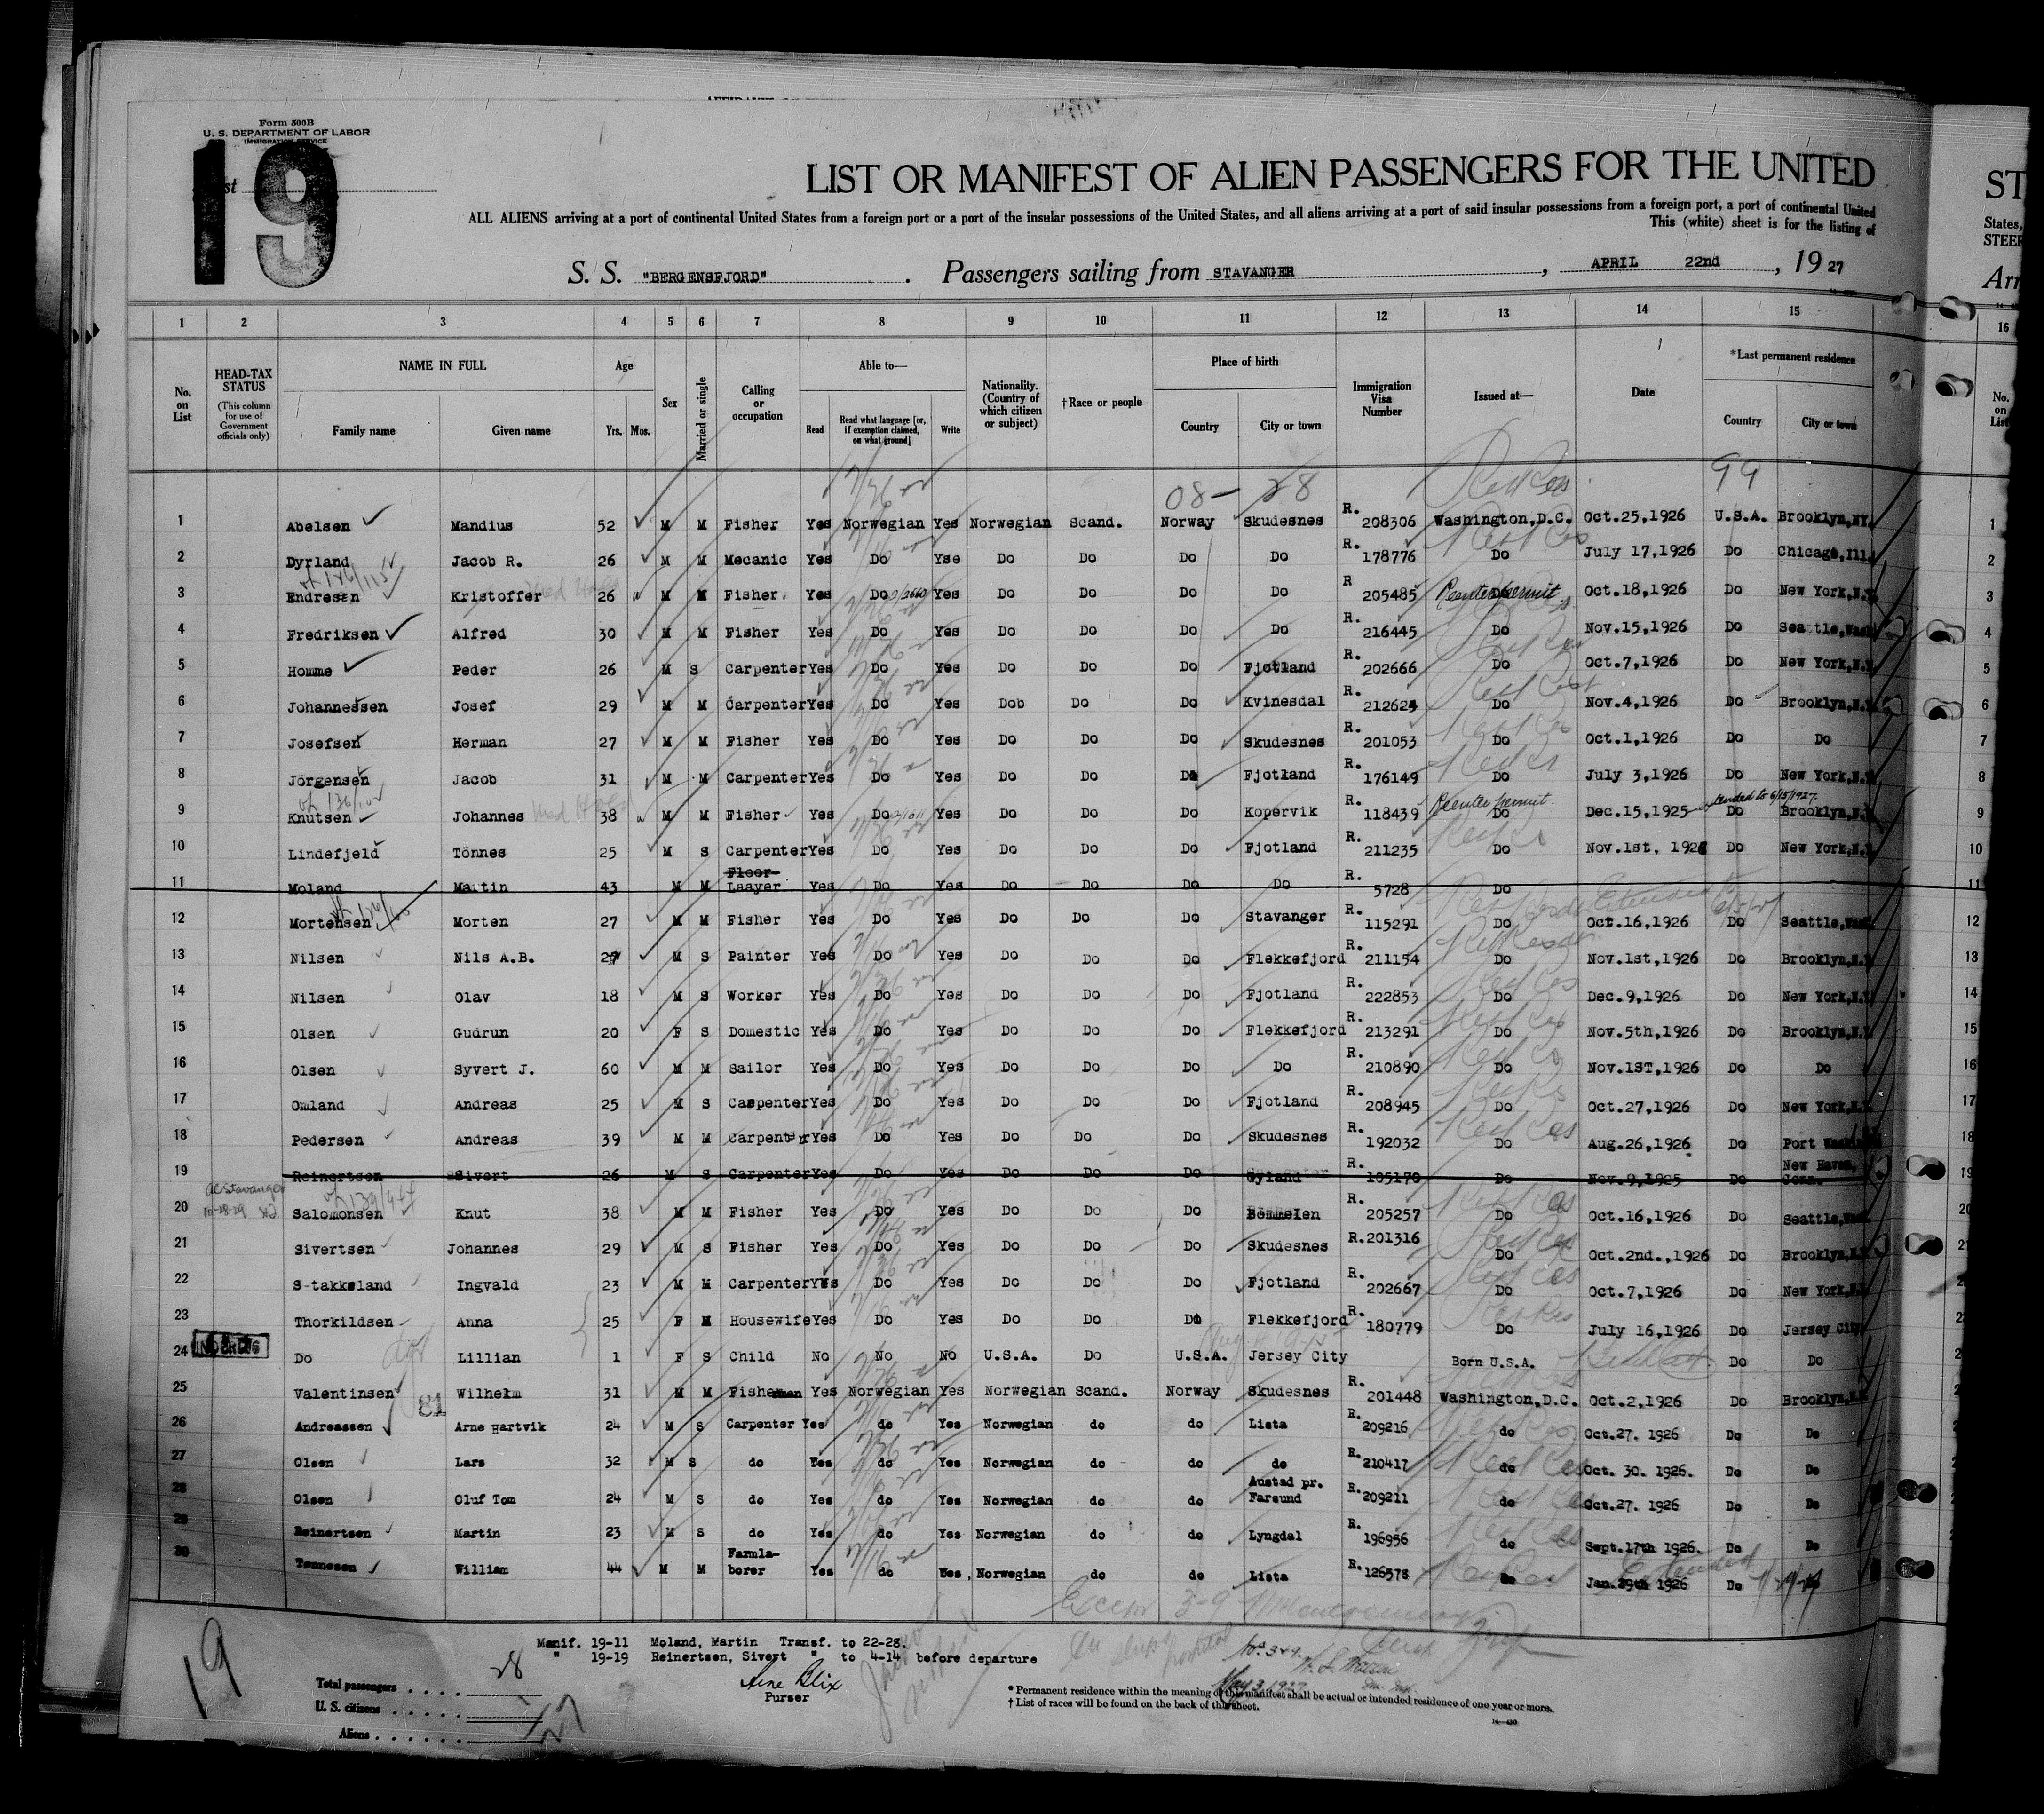 Form 500B
U. S. DEPARTMENT OF LABOR
IMMIGRATION SERVICE
19
LIST OR MANIFEST OF ALIEN PASSENGERS FOR THE UNITED
ST
ALL ALIENS arriving at a port of continental United States from a foreign port or a port of the insular possessions of the United States, and all aliens arriving at a port of said insular possessions from a foreign port, a port of continental United
States,
This (white) sheet is for the listing of
STEER
S. S. "BERGENSFJORD" . Passengers sailing from STAVANGER , APRIL 22nd , 19 27
Arr
1 2 3 4 5 6 7 8 9 10 11 12 13 14 15 16
No. on List
HEAD-TAX STATUS (This column for use of Government officials only)
NAME IN FULL
Family name Given name
Age
Yrs. Mos.
Sex
Married or single
Calling or occupation
Able to—
Read Read what language [or, if exemption claimed, on what ground] Write
Nationality. (Country of which citizen or subject)
†Race or people
Place of birth
Country City or town
Immigration Visa Number
Issued at—
Date
*Last permanent residence
Country City or town
No. on List
08- 28 99
1 Abelsen Mandius 52 M M Fisher Yes Norwegian Yes Norwegian Scand. Norway Skudesnes R. 208306 Washington,D.C. Oct.25,1926 U.S.A. Brooklyn,NY. 1
2 Dyrland Jacob R. 26 M M Mecanic Yes Do Yse Do Do Do Do R. 178776 Do July 17,1926 Do Chicago,Ill. 2
3 Endresen Kristoffer 26 M M Fisher Yes Do Yes Do Do Do Do R 205485 Do Reenter permit Oct.18,1926 Do New York,N.Y. 3
4 Fredriksen Alfred 30 M M Fisher Yes Do Yes Do Do Do Do R. 216445 Do Nov.15,1926 Do Seattle,Wash 4
5 Homme Peder 26 M S Carpenter Yes Do Yes Do Do Do Fjotland R. 202666 Do Oct.7,1926 Do New York,N.Y. 5
6 Johannessen Josef 29 M M Carpenter Yes Do Yes Dob Do Do Kvinesdal R. 212624 Do Nov.4,1926 Do Brooklyn,N.Y. 6
7 Josefsen Herman 27 M M Fisher Yes Do Yes Do Do Do Skudesnes R. 201053 Do Oct.1,1926 Do Do 7
8 Jörgensen Jacob 31 M M Carpenter Yes Do Yes Do Do Do Fjotland R. 176149 Do July 3,1926 Do New York,N.Y. 8
9 Knutsen Johannes 38 M M Fisher Yes Do Yes Do Do Do Kopervik R. 118439 Reenter permit. Do Dec.15,1925 Do Brooklyn,N.Y. 9
10 Lindefjeld Tönnes 25 M S Carpenter Yes Do Yes Do Do Do Fjotland R. 211235 Do Nov.1st, 1926 Do New York,N.Y. 10
11 Moland Martin 43 M M Floor-Laayer Yes Do Yes Do Do Do Do R. 5728 Do 11
12 Mortensen Morten 27 M M Fisher Yes Do Yes Do Do Do Stavanger R. 115291 Do Oct.16,1926 Do Seattle,Wash 12
13 Nilsen Nils A.B. 27 M S Painter Yes Do Yes Do Do Do Flekkefjord R. 211154 Do Nov.1st,1926 Do Brooklyn,N.Y 13
14 Nilsen Olav 18 M S Worker Yes Do Yes Do Do Do Fjotland R. 222853 Do Dec.9,1926 Do New York,N.Y 14
15 Olsen Gudrun 20 F S Domestic Yes Do Yes Do Do Do Flekkefjord R. 213291 Do Nov.5th,1926 Do Brooklyn,N.Y 15
16 Olsen Syvert J. 60 M M Sailor Yes Do Yes Do Do Do Do R. 210890 Do Nov.1ST,1926 Do Do 16
17 Omland Andreas 25 M S Carpenter Yes Do Yes Do Do Do Fjotland R. 208945 Do Oct.27,1926 Do New York,N.Y. 17
18 Pedersen Andreas 39 M M Carpenter Yes Do Yes Do Do Do Skudesnes R. 192032 Do Aug.26,1926 Do Port 18
19 Reinertsen Sivert 26 M S Carpenter Yes Do Yes Do Do Do Gyland R. 105170 Do Nov.9,1925 Do New Haven, Conn. 19
20 Salomonsen Knut 38 M M Fisher Yes Do Yes Do Do Do Bommelen R. 205257 Do Oct.16,1926 Do Seattle,Wash 20
21 Sivertsen Johannes 29 M S Fisher Yes Do Yes Do Do Do Skudesnes R.201316 Do Oct.2nd.,1926 Do Brooklyn,N.Y 21
22 S-takkeland Ingvald 23 M M Carpenter Yes Do Yes Do Do Do Fjotland R. 202667 Do Oct.7,1926 Do New York,N.Y
23 Thorkildsen Anna 25 F M Housewife Yes Do Yes Do Do Do Flekkefjord R. 180779 Do July 16,1926 Do Jersey City
24 Do Lillian 1 F S Child No No No U.S.A. Do U.S.A. Jersey City Born U.S.A. Do Do
25 Valentinsen Wilhelm 31 M M Fisherman Yes Norwegian Yes Norwegian Scand. Norway Skudesnes R. 201448 Washington,D.C. Oct.2,1926 Do Brooklyn,N.Y
81
26 Andreassen Arne Hartvik 24 M S Carpenter Yes do Yes Norwegian do do Lista R. 209216 do Oct.27. 1926 Do Do
27 Olsen Lars 32 M S do Yes do Yes Norwegian do do do R. 210417 do Oct. 30. 1926. Do Do
28 Olsen Oluf Tom 24 M S do Yes do Yes Norwegian do do Austad pr. Farsund R. 209211 do Oct.27. 1926 Do Do
29 Reinertsen Martin 23 M S do Yes do Yes Norwegian do do Lyngdal R. 196956 do Sept.17th 1926. Do Do
30 Tønnesen William 44 M M Farmla-borer Yes do Yes, Norwegian do do Lista R. 126578 do Jan.29th 1926 Do Do
Manif. 19-11 Moland, Martin Transf. to 22-28.
" 19-19 Reinertsen, Sivert " to 4-14 before departure
Arne Blix
Purser
19
Total passengers 28
U. S. citizens 1
Aliens 27
May 3 1927
* Permanent residence within the meaning of this manifest shall be actual or intended residence of one year or more.
† List of races will be found on the back of this sheet.